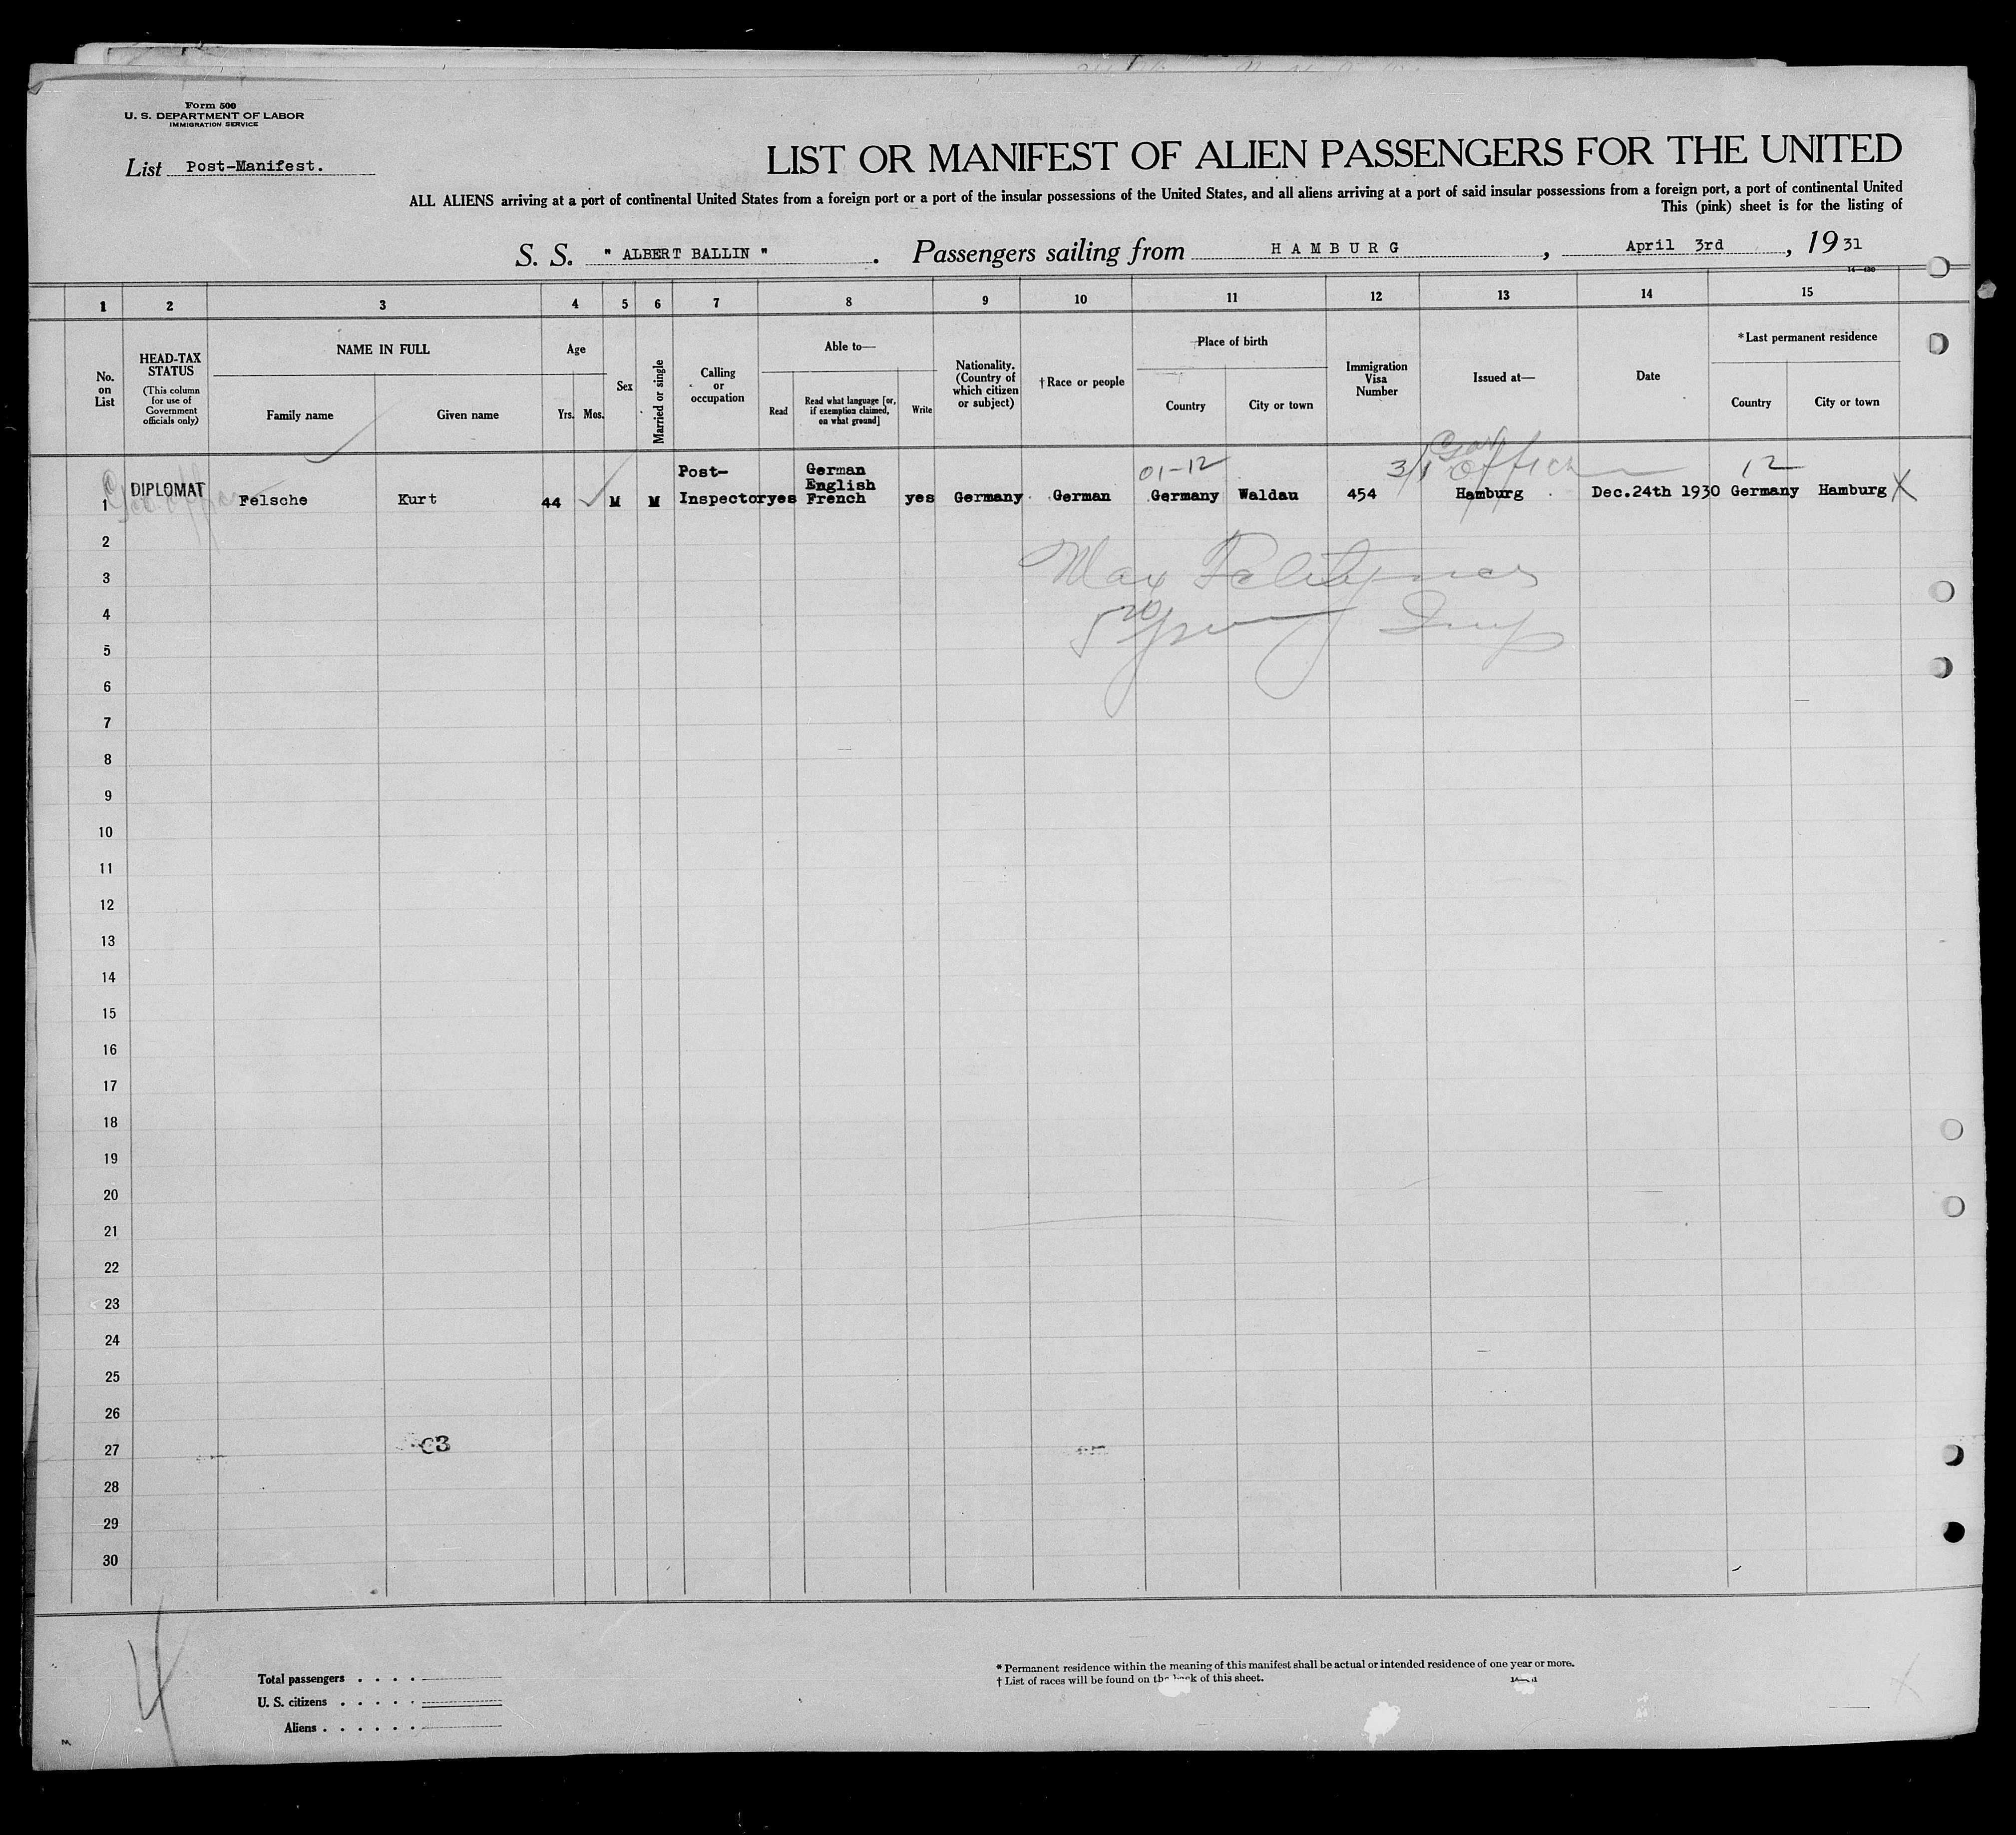 Form 500
U. S. DEPARTMENT OF LABOR
IMMIGRATION SERVICE
List Post-Manifest.
LIST OR MANIFEST OF ALIEN PASSENGERS FOR THE UNITED
ALL ALIENS arriving at a port of continental United States from a foreign port or a port of the insular possessions of the United States, and all aliens arriving at a port of said insular possessions from a foreign port, a port of continental United
This (pink) sheet is for the listing of
S. S. " ALBERT BALLIN " . Passengers sailing from HAMBURG , April 3rd , 1931
1 2 3 4 5 6 7 8 9 10 11 12 13 14 15
No. on List
HEAD-TAX STATUS
(This column for use of Government officials only)
NAME IN FULL
Family name Given name
Age
Yrs. Mos.
Sex
Married or single
Calling or occupation
Able to—
Read
Read what language [or, if exemption claimed, on what ground]
Write
Nationality. (Country of which citizen or subject)
† Race or people
Place of birth
Country City or town
Immigration Visa Number
Issued at—
Date
*Last permanent residence
Country City or town
01-12 3/1 12
1 DIPLOMAT Felsche Kurt 44 M M Post-Inspector yes German English French yes Germany German Germany Waldau 454 Hamburg Dec.24th 1930 Germany Hamburg X
2
3
4
5
6
7
8
9
10
11
12
13
14
15
16
17
18
19
20
21
22
23
24
25
26
27
28
29
30
C3
4
Total passengers . . . .
U. S. citizens . . . . .
Aliens . . . . . .
* Permanent residence within the meaning of this manifest shall be actual or intended residence of one year or more.
† List of races will be found on the back of this sheet.